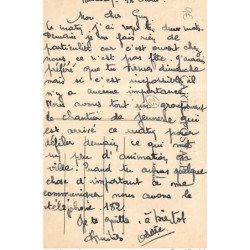 Mon cher Guy
Ce matin j'ai reçu tes deux mots.
Demain tu fais rien de
particulier car c'est avant chez
nous, ce n'est pas fête. J'aurais
préféré que tu viennes dimanche
mais si c'est impossible il
n'y a aucune importance.
Nous avons tout un groupement
de chantier de jeunesse qui
est arrivé ce matin pour
défiler demain, ce qui met
un peu d'animation en
ville. Quand tu auras quelque
chose d'important à me
communiquer nous avons le
téléphone. 182
Je te quitte à bientôt
Amitiés